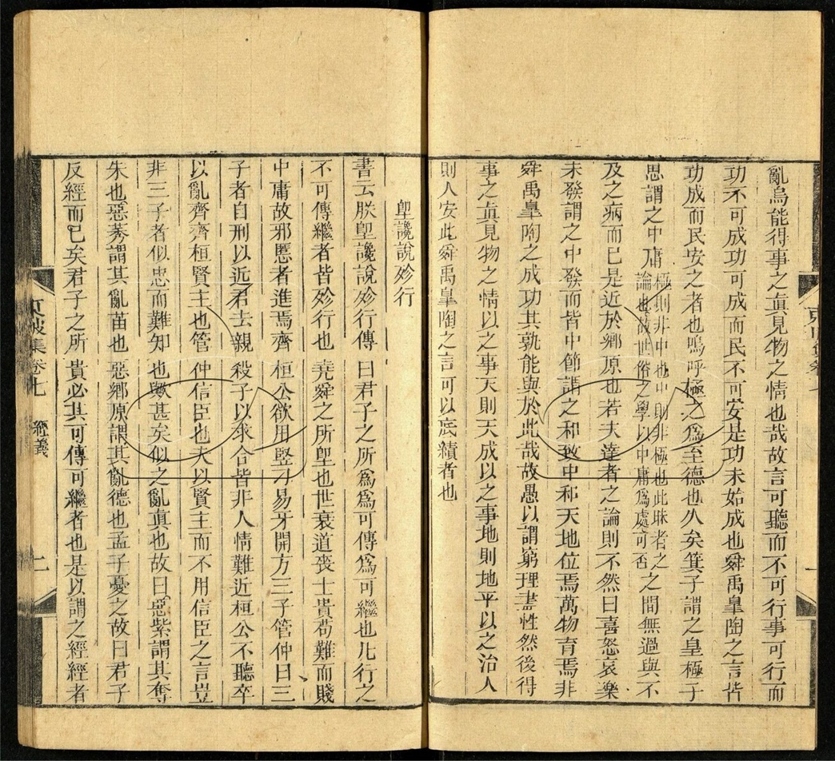 亂烏能得事之眞見物之情也哉故言可聽而不可行事可行而
功不可成功可成而民不可安是功未始成也舜禹皐陶之言皆
功成而民安之者也嗚呼極之爲至德也久矣箕子謂之皇極子
思謂之中庸極則非中也中則非極也此昧者之
論也故世俗之學以中庸爲處可否之間無過與不
及之病而巳是近於鄉原也若夫達者之論則不然曰喜怒哀樂
未發謂之中發而皆中節謂之和致中和天地位焉萬物育焉非
舜禹皐陶之成功其孰能與於此哉故愚以謂窮理盡性然後得
事之眞見物之情以之事天則天成以之事地則地平以之治人
則人安此舜禹皐陶之言可以底績者也
東坡集卷七
堲讒說殄行
書云朕堲讒說殄行傳曰君子之所爲爲可傳爲可繼也凡行之
不可傳繼者皆殄行也堯舜之所堲也世衰道喪士貴苟難而賤
中庸故邪慝者進焉齊桓公欲用竪刁易牙開方三子管仲曰三
子者自刑以近君去親殺子以求合皆非人情難近桓公不聽卒
以亂齊齊桓賢主也管仲信臣也夫以賢主而不用信臣之言豈
非三子者似忠而難知也歟甚矣似之亂眞也故曰惡紫謂其奪
朱也惡莠謂其亂苗也惡鄉原謂其亂德也孟子憂之故曰君子
反經而巳矣君子之所貴必其可傳可繼者也是以謂之經經者
東坡集卷七
經義
二